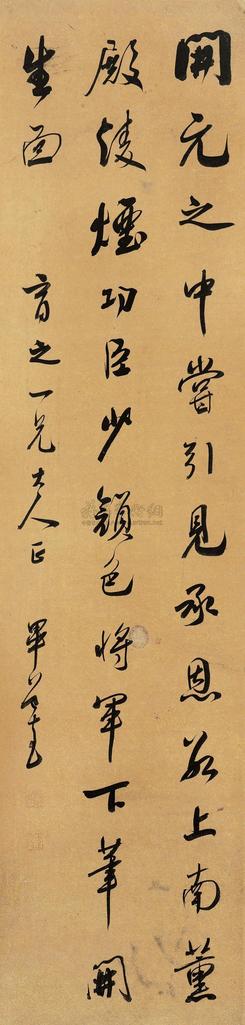 開元之中嘗引見承恩數上南薰
殿凌煙功臣少顏色將軍下筆開
生面 育之一兄大人正